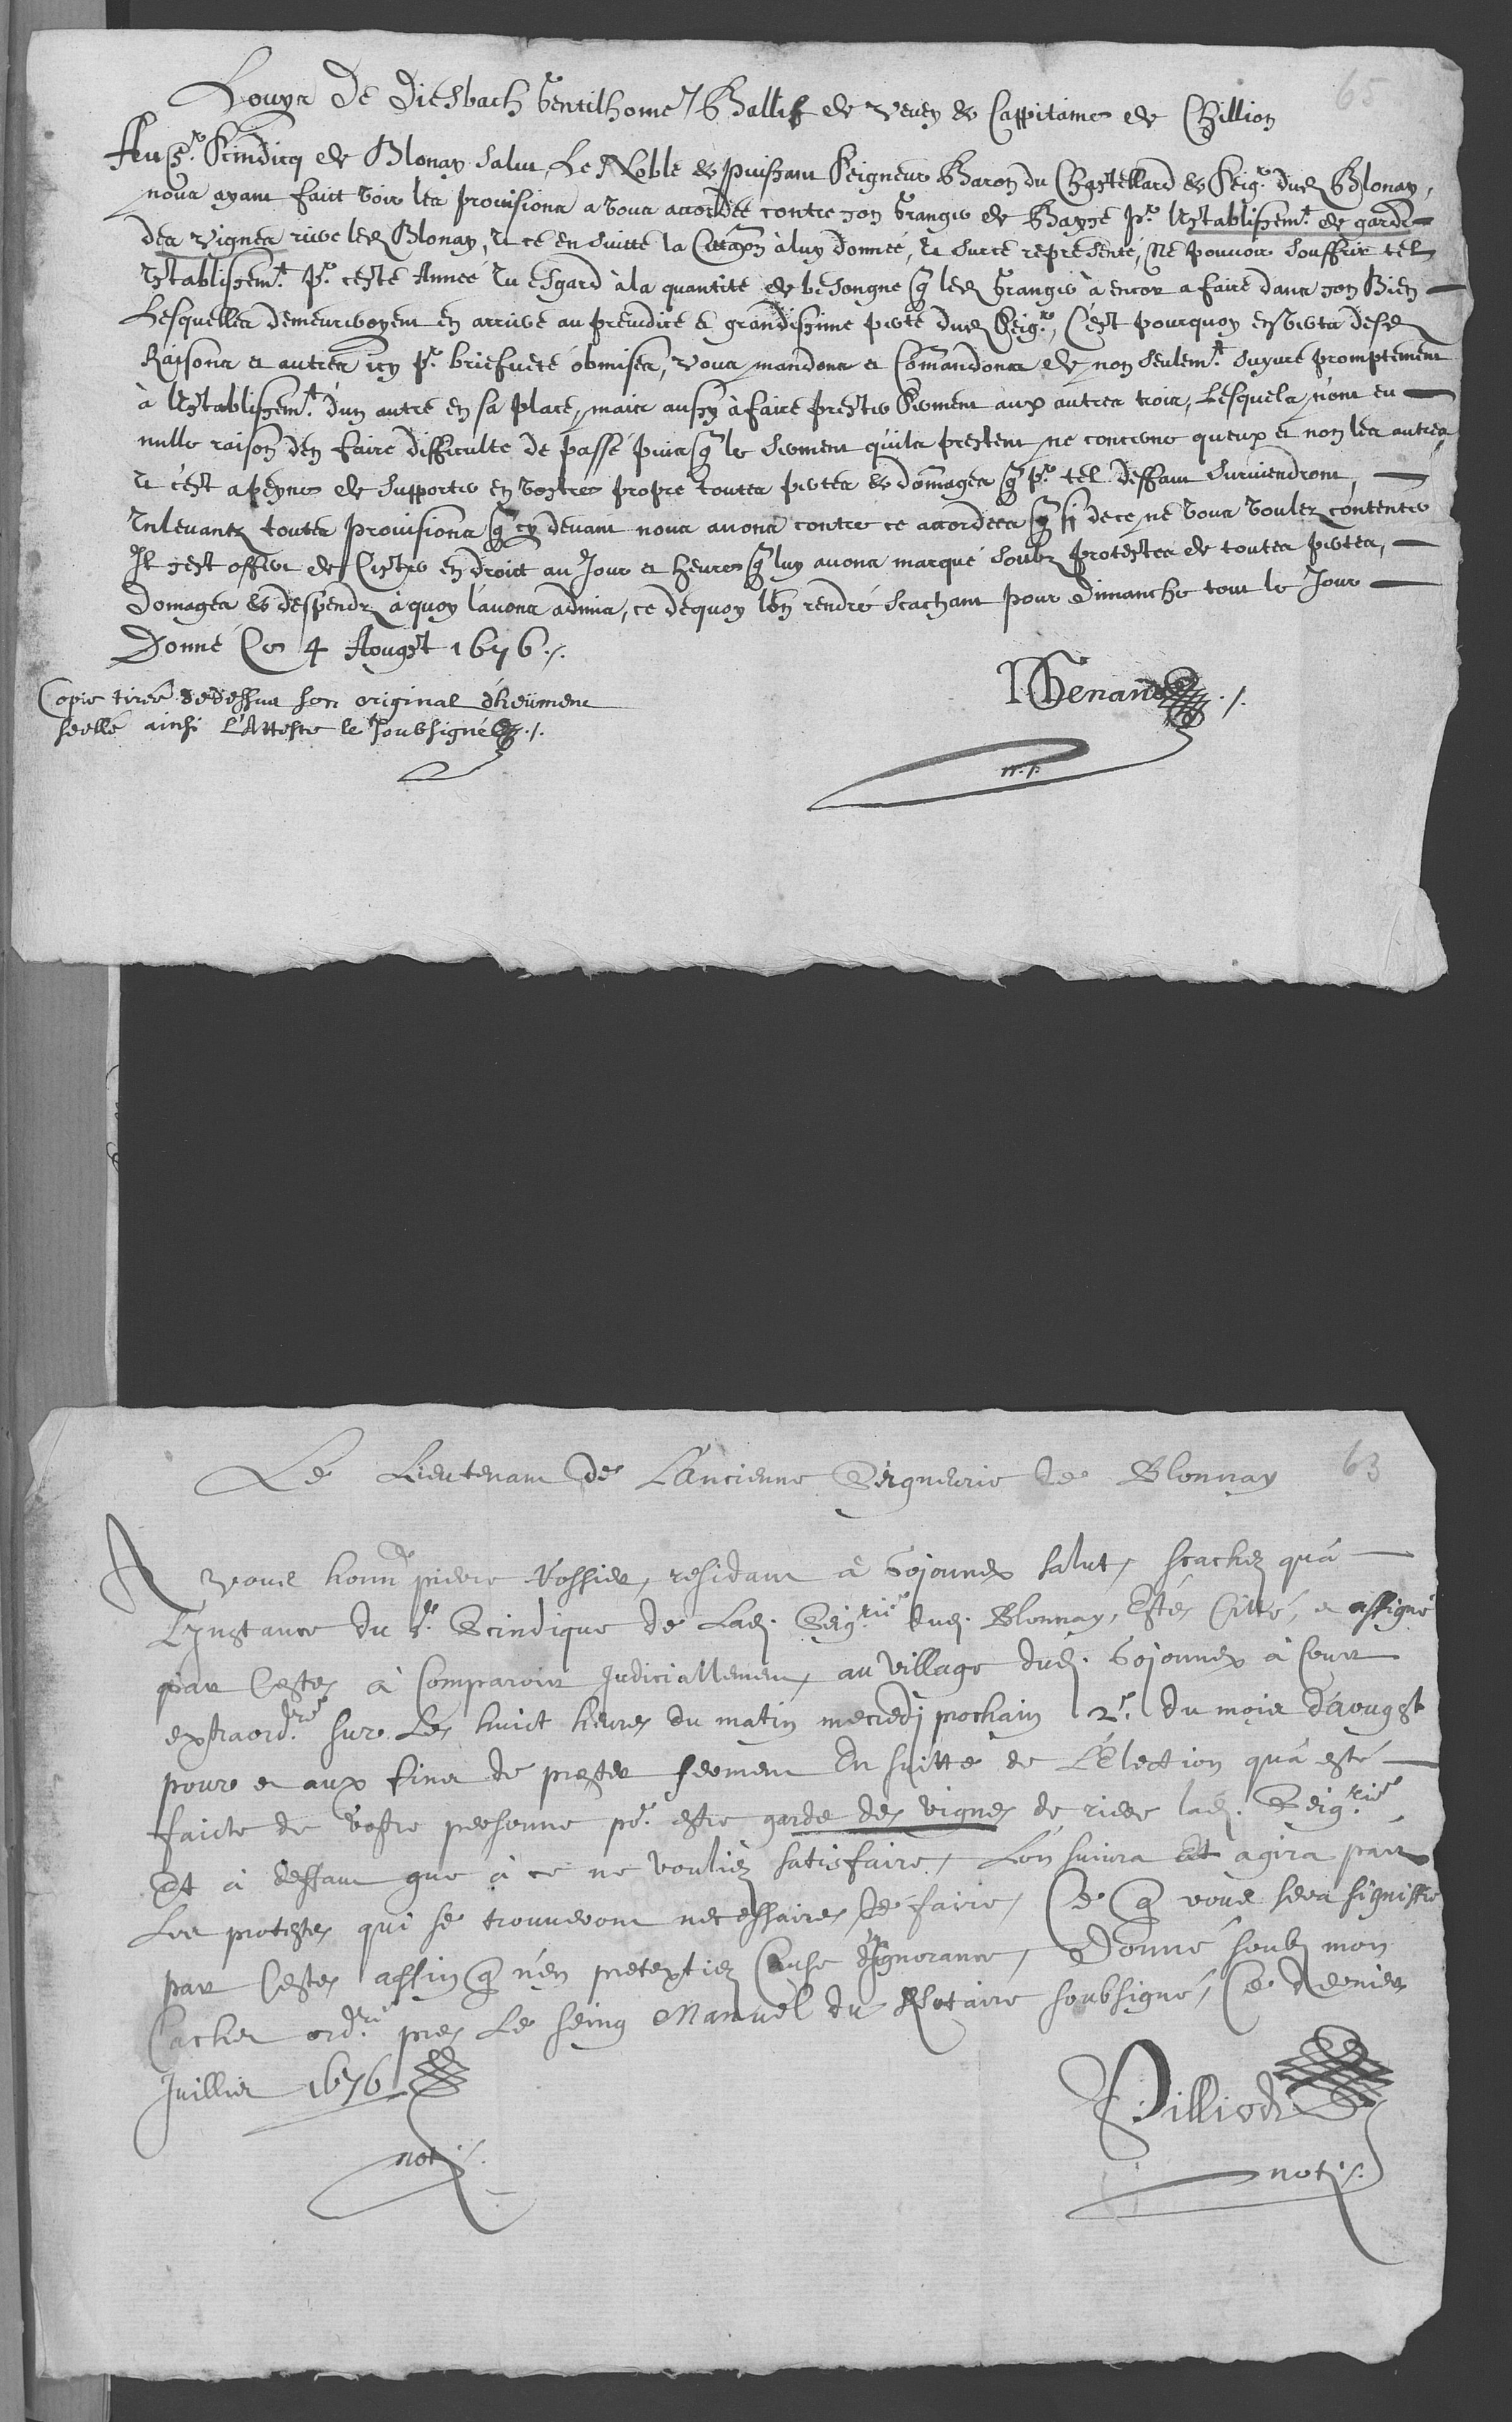 65
Louys De Diesbach Gentilhome, Ballif de Vevey & Cappitaine de Chillion
Au Sr. Scindicq de Blonay salut, Le Noble & puissant Seigneur Baron du Chastellard & Seigr. dud. Blonay,
nous ayant faict voir les provisions a vous accordée contre son Grangier de Baysé pr. l'establissemt. de garde
des vignes riere led. Blonay, et ce en suitte la Cittaõn à luy donnée, et surce representé, Ne pouvoir souffrir tel
establissemt. pr. ceste Année eu esgard à la quantite de besongne q̃ led. Grangier à encor a faire dans son Bien
Lesquelles demeureroyent en arriere au prejudice & grandissime perte dud. Seigr., C'est pourquoy en vertu desd.
Raisons et autres icy pr. briefveté obmises, vous mandons et Comandons de non seulemt. suyvre promptement
à l'establissemt. d'un autre en sa place, mais aussy à faire prester serment aux autres trois, Lesquels n'ont eu
nulle raison den faire difficulte de passé puis q̃ le serment quils prestent ne concerne queux et non les autres
et c'est a peyne de supporter en vostre propre toutes pertes & domages q̃ pr. tel deffaut surviendront,
Enlevantz toutes provisions q̃ cy devant nous avons contre ce accordees q̃ si de ce ne vous voulez contenter
Il s'est offert de l'ester en droict au Jour et heure q̃ luy avons marqué soubz protestes de toutes pertes,
domages & despendz à quoy l'avons admis, ce dequoy l'en rendre scachant pour Dimanche tout le Jour
Donné Ce 4 Aougst 1676 ./.
Copie tirée dedessus son original dheüment
seellé ainsi L'Atteste le soubsigné ./.
Chenaud ./.
63
Le Lieutenant de L'ancienne Seigneurie de Blonnay
A vous honn. pierre Vossier, residant à Sojonnex salut, scachez qu'à
L'instance du Sr. Scindique de Lad. Seigrie. dud. Blonnay, Estes Citté, & assigné
par Cestes à Comparoir Judiciallement, au village dud. Sojonnex à Cour
extraordre. sur Les huict heures du matin mecredj prochain 2e. du mois d'Aougst
pour et aux fins de prester serment En suitte de L'Election qu'a esté
faicte de vostre personne pr. estre garde des vignes de riere lad. Seigrie.
Et à deffaut que à ce ne vouliez satisfaire, Lon suivra Et agira par
Les protestes qui se trouveront necessaires de faire, Ce q̃ vous sera signiffié
par Cestes affin q̃ n'en pretextiez Cause d'Ignorance, Donné soubz mon
Cachet ordre. pres Le seing Manuel du Notaire soubsigné, Ce dernier
Juillet 1676
not.
Pilliod
not. ./.